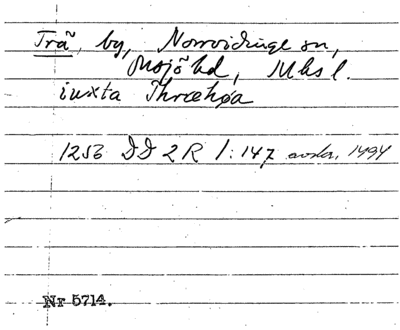 Trã, by, Norrvidinge sn,
Onsjö hd, Mhs l.
iuxta Thræhøa
1256 DD 2R 1:147 avskr. 1494
Nr 5714.